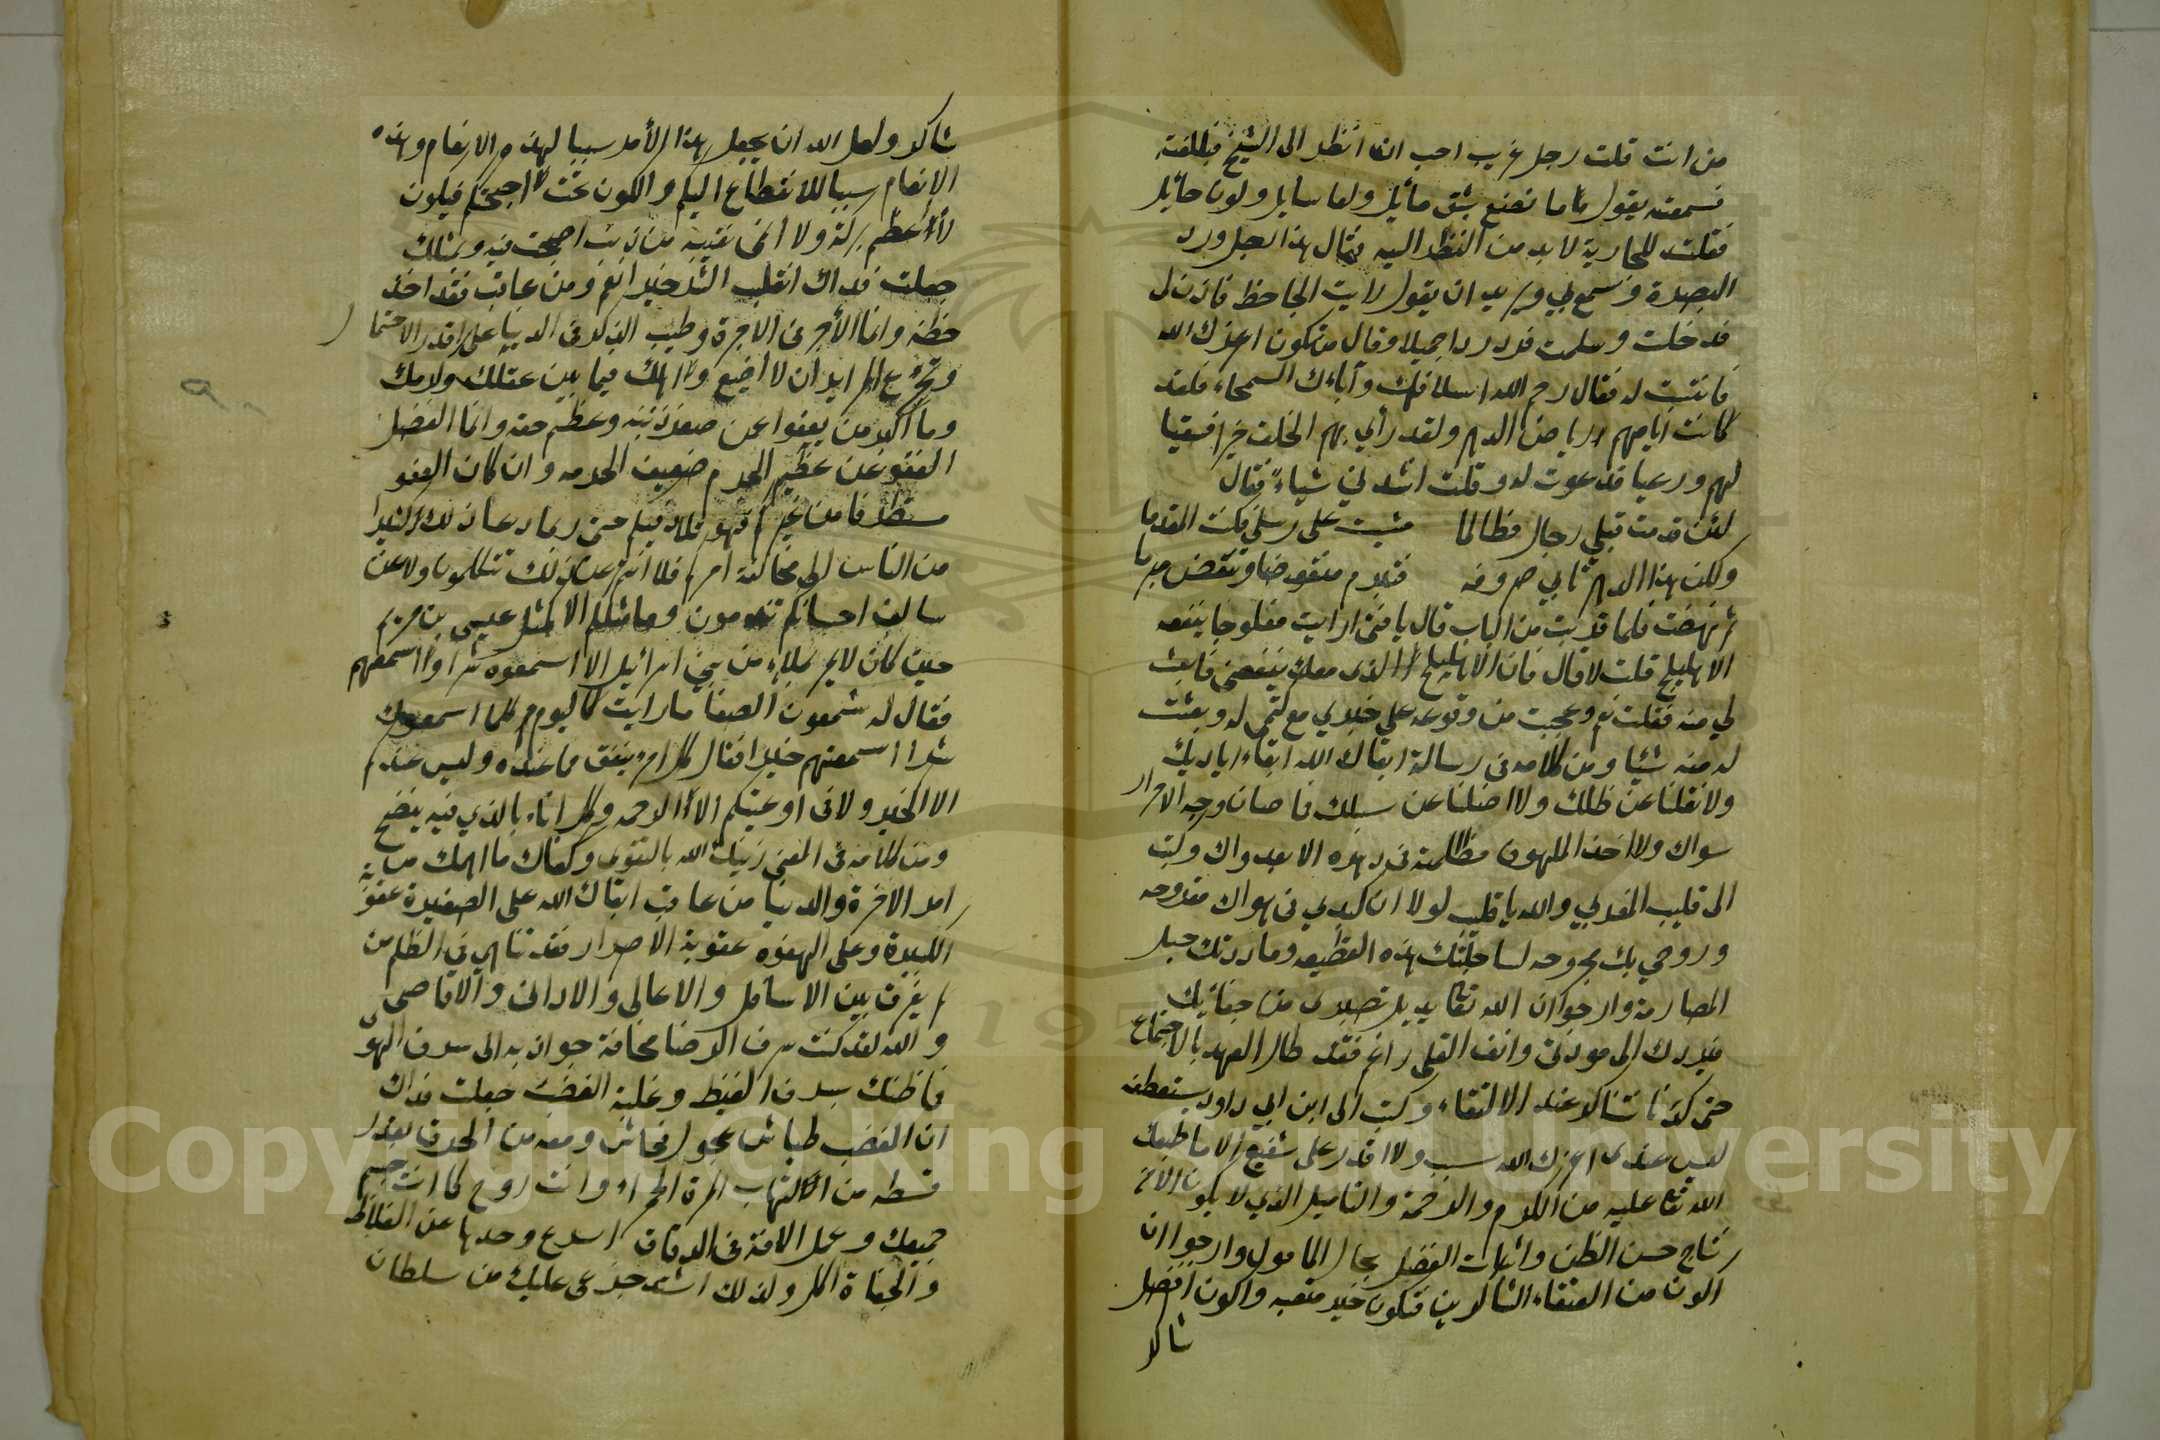 من انت قلت رجل غريب احب ان انظر الى الشيخ فبلغته
فسمعته يقول ما تصنع بشق مائل ولعاب سايل ولون حايل
فقلت للجارية لا بد من النظر اليه فقال هذا رجل ورد
البصرة وسمع بي ويريد ان يقول رايت الجاحظ فاذن لي
فدخلت وسلمت فرد ردا جميلا وقال من تكون اعزك الله
فانتسبت له فقال رحم الله اسلافك وآباءك السمحاء فلقد
كانت ايامهم رياض الدهر ولقد رأى بهم الخلق خيرا فسقيا
لهم ورعيا فدعوت له وقلت انشدني شياء فقال
لئن قدمت قبلي رجال فطالما مشيت على رسلي فكنت المقدما
ولكن هذا الدهر تابى صروفه فتبرم منقوضا وتنقض مبرما
ثم نهضت فلما قربت من الباب قال يا فتى ارايت مفلوجا ينفعه
الاهليلج قلت لا قال فان الاهليلج الذي معك ينفعني فابعث
لي منه فقلت نعم وعجبت من وقوعه علي خبري مع كتمي له وبعثت
له منه شيا ومن كلامه في رسالة ابقاك الله ابقاء اياديك
ولا نقلنا عن ظلك ولا اضلنا عن سبيلك فما صان وجه الاحرار
سواك ولا اخذ الملهوف مظالمه في دهره الا بعدواك وكتب
الى قليب المغربي والله يا قليب لولا ان كبدي في هواك مقروحه
وروحي بك مجروحه لساجلتك هذه القطيعه وماددتك حبل
المصارمه وارجو ان الله تعالى يديل صبري من جفائك
فيردك الى مودتي وانف القلى راغم فقد طال العهد بالاجتماع
حتى كدنا نتناكر عند الالتقاء وكتب الى ابن ابي داود يستعطفه
ليس عندي اعزك الله سبب ولا اقدر على شفيع الا ما طبعك
الله تعالى عليه من الكرم والرحمة والتاميل الذي لا يكون الا من
نتاج حسن الظن واثبات الفضل بحال المامول وارجو ان
اكون من العتقاء الشاكرين فتكون خير معتب واكون افضل
شاكر
شاكر ولعل الله ان يجعل هذا الأمر سببا لهذا الانعام وهذا
الانعام سببا للانقطاع اليكم والكون تحت اجنحتكم فيكون
لا أعظم بركة ولا انمى بقية من ذنب اصبحت فيه وبمثلك
جعلت فداك انقلب الشر خيرا نعم ومن عاقب فقد اخذ
حظه وانما الأجر في الاخرة وطيب الذكر في الدنيا على قدر الاحتمال
وتجرع المراير ان لا أضيع ولا اهلك فيما بين عقلك وكرمك
وما اكثر من يعفوا عمن صغر ذنبه وعظم حقه وانما الفضل
العفو عن عظيم الجرم ضعيف الحرمه وان كان العفو
مستطرفا من غيركم فهو تلاد فيكم حتى ربما دعا ذلك كثيرا
من الناس الى مخالفة امركم فلا انتم عن ذلك تنكلون ولا عن
سالف احسانكم تندمون وما مثلكم الا كمثل عيسى بن مريم
حين كان لا يمر بملاء من بني اسرائيل الا اسمعوه شرا واسمعهم
فقال له شمعون الصفا ما رايت كاليوم كلما اسمعوك
شرا اسمعتهم خيرا فقال كل امرء ينفق ما عنده وليس عندكم
الا الخير ولا في اوعيتكم الا الرحمه وكل اناء بالذي فيه ينضح
ومن كلامه في المعنى زينك الله بالتقوى وكفاك ما اهمك من
امر الاخرة والدنيا من عاقب ابقاك الله على الصغيرة عقوبة
الكبيرة وعلى الهفوه عقوبة الاصرار فقد تناهى في الظلم من
لم يفرق بين الاسافل والاعالي والاداني والاقاصي
والله لقد كنت سرف الرضا مخافة جواذبه الى سرف الهوى
فما ظنك بسرف الغيظ وغلبة الغضب جعلت فداك
ان الغضب طياش عجول فحاش ومعه من الخرق بقدر
قسطه من التهاب المرة الحمراء وانت روح كما انت جسم
جميعك وعمل الافة في الدقاق اسرع وحدها عن الغلاظ
والجفاة اكل ولذلك اشتد جزعي عليك من سلطان